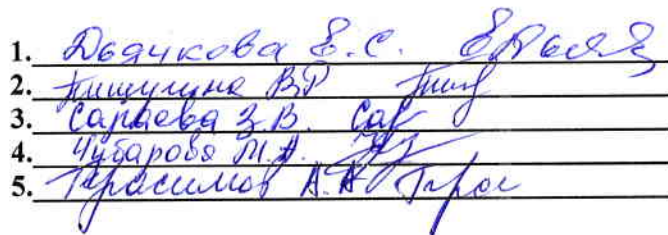 1. Дьячкова Е.С.
2. Пищугина В.Р
3. Сараева З.В. Сар
4. Чубарова М.А.
5. Герасимов А.А Гера